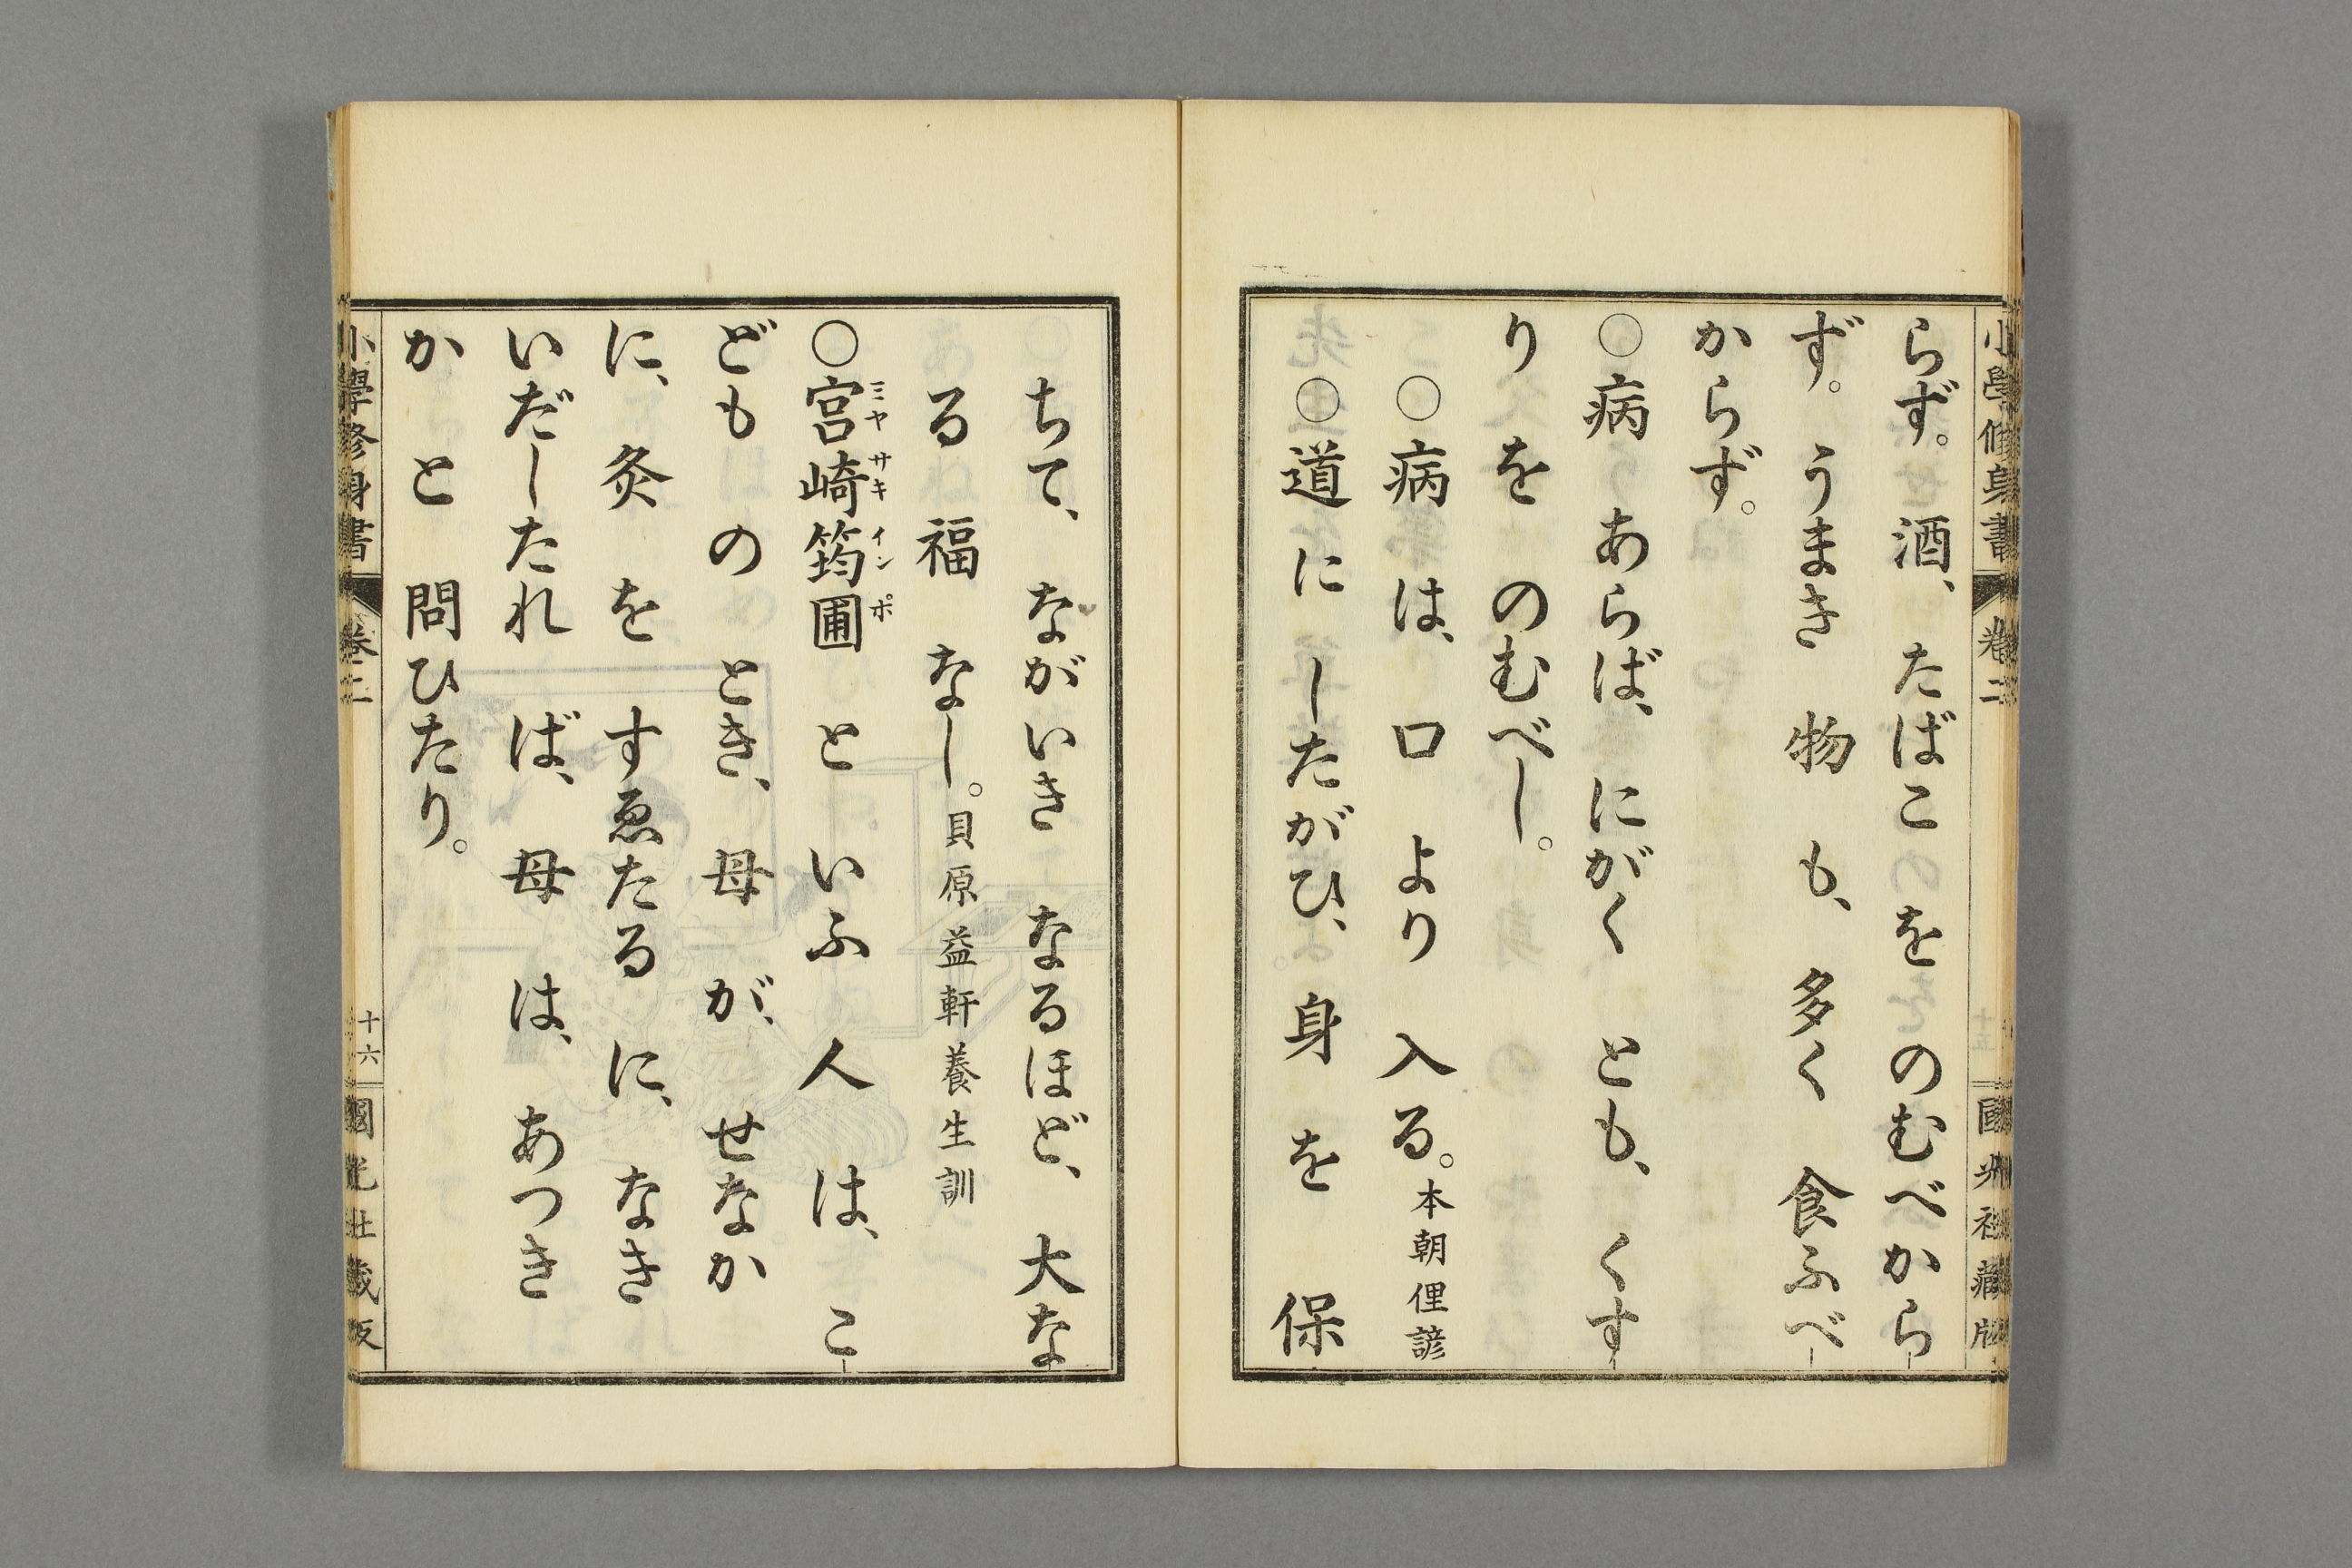 小學修身書 卷二 國光社藏版
らず。酒、たばこをのむべから
ず。うまき物も、多く食ふべ
からず。
○病あらば、にがくとも、くす
りをのむべし。
○病は、口より入る。本朝俚諺
○道にしたがひ、身を保
ちて、ながいきなるほど、大な
る福なし。貝原益軒養生訓
○宮崎筠圃といふ人は、こ
ミヤサキインポ
どものとき、母が、せなか
に、灸をすゑたるに、なき
いだしたれば、母は、あつき
かと問ひたり。
小學修身書 卷二 十六 國光社藏版